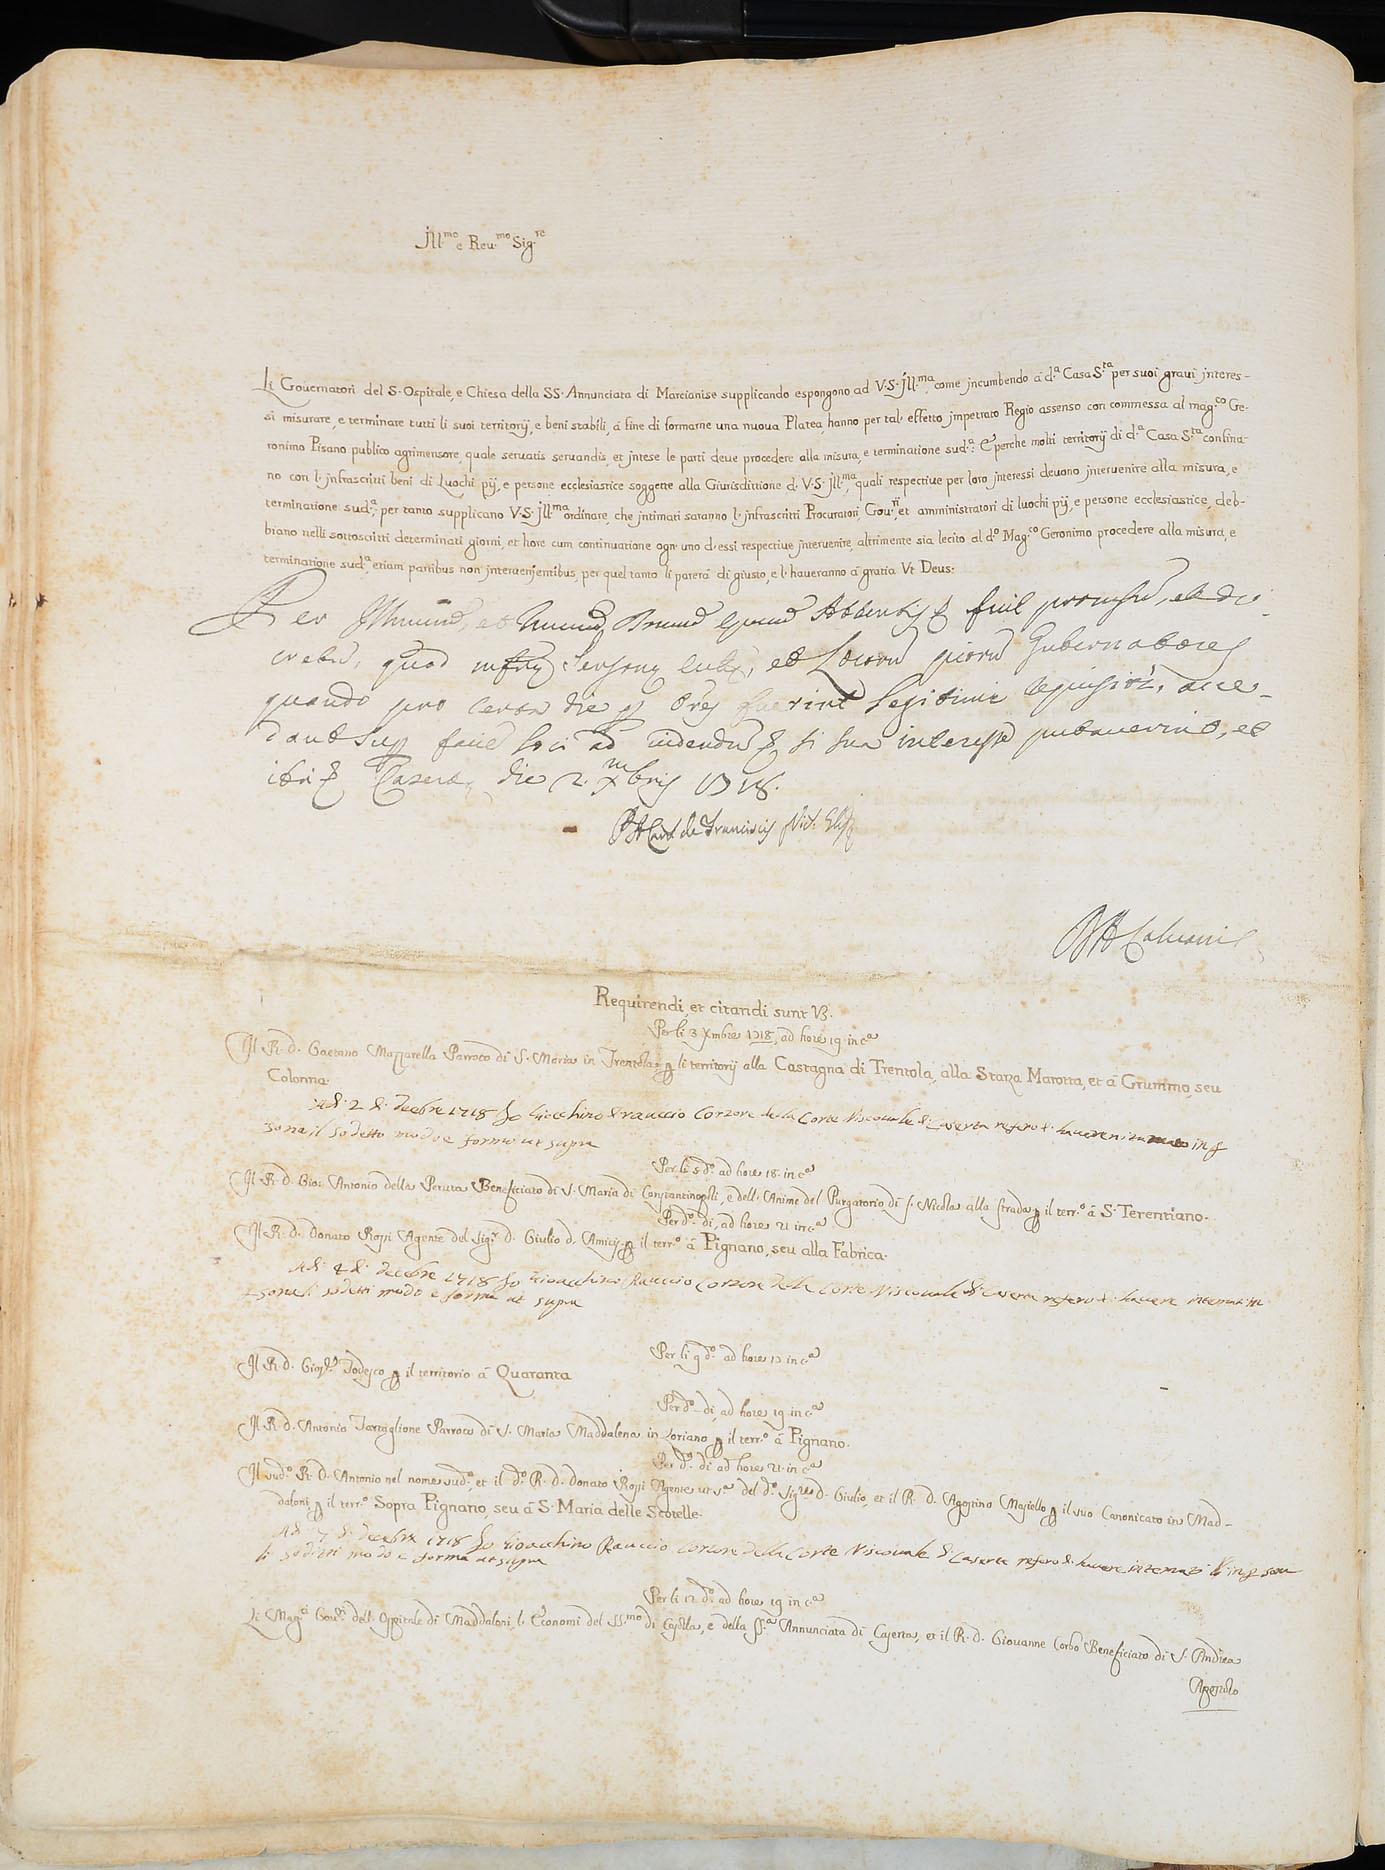 Jll.mo e Reu.mo Sig.re
Li Gouernatori del S. Ospitale, e Chiesa della SS. Annunciata di Marcianise supplicando espongono ad V.S. Jll.ma, come jncumbendo á d.ª Casa S.ta per suoi graui jnteres-
si misurare, e terminare tutti li suoi territorij, e beni stabili, á fine di formarne una nuoua Platea, hanno per tal' effetto jmpetrato Regio assenso con commessa al mag.co Ge-
ronimo Pisano publico agrimensore, quale seruatis seruandis, et jntese le parti deue procedere alla misura, e terminatione sud.ª: E perche molti territorij di d.ª Casa S.ta confina-
no con l'jnfrascritti beni di Luochi pij, e persone ecclesiastice soggette alla Giurisdittione d. V.S. Jll.ma, quali respectiue per loro jnteressi deuono jnteruenire alla misura, e
terminatione sud.ª; per tanto supplicano V.S. Jll.ma ordinare, che jntimati saranno l'jnfrascritti Procuratori, Gou.ri, et amministratori di luochi pij, e persone ecclesiastice, deb-
biano nelli sottoscritti determinati giorni, et hore cum continuatione ogn'uno d'essi respectiue jnteruenire, altrimente sia lecito al d.o Mag.co Geronimo procedere alla misura, e
terminatione sud.ª, etiam partibus non jnteruenjentibus, per quel tanto li parerá di giusto, e l'haueranno á gratia Vt Deus:
Per fuit prouisu, et de-
cretu, quod et Locoru pioru Gubernatores
quando pro certa die fuerint legitime acce-
dant faciē loci ad uidendu si sua interesse putauerint, et
ita Caserte die 2. Xbris 1718.
de Franciscis Vic.
Requirendi, et citandi sunt V3.
Per li 3 Xmbre 1718, ad hore 19 in c.ª
Il R. D. Gaetano Mazzarella Parroco di S. Maria in Trentola p li territorij alla Castagna di Trentola, alla Starza Marotta, et á Grummo, seu
Colonna.
A di 2 d. Decbre 1718 Io Gioacchino Rauccio Corsore della Corte Viscouale di Caserta refero d. hauere in p
sona il sodetto modo e forma ut supra
Per li 5 d.o ad hore 18 in c.ª
Il R. D. Gio: Antonio della Peruta Beneficiato di S. Maria di Constantinopoli, e dell'Anime del Purgatorio di S. Nicola alla strada p il terr.o á S. Terentiano.
Per d.o di, ad hore 21 in c.ª
Il R. D. Donato Rossi Agente del Sig.r D. Giulio d. Amicis p il terr.o á Pignano, seu alla Fabrica.
A di 4 d. Decebre 1718 Io Gioacchino Rauccio Corsore della Corte Viscouale di Caserta refero d. hauere intemati in
psona li sodetti modo e forma ut supra
Per li 9 d.o ad hore 17 in c.ª
Il R. D. Todesco p il territorio á Quaranta
Per d.o di, ad hore 19 in c.ª
Il R. D. Antonio Tartaglione Parroco di S. Maria Maddalena in Loriano p il terr.o á Pignano.
Per d.o di ad hore 21 in c.ª
Il sud.o R. D. Antonio nel nome sud.o, et il d.o R. D. Donato Rossi Agente ut s.ª del d.o Sig.re D. Giulio, et il R. D. Agostino Masiello p il suo Canonicato in Mad-
daloni, p il terr.o Sopra Pignano, seu á S. Maria delle Scotelle.
A di 7 d. Decebre 1718 Io Gioacchino Rauccio Corsore della Corte Viscouale di Caserta refero d. hauere intemati in p sona
li sodetti modo e forma ut supra
Per li 12 d.o ad hore 19 in c.ª
Li Mag.ci Gou.ri dell'Ospitale di Maddaloni, l'Economi del SS.mo di Casolla, e della SS.ª Annunciata di Caserta, et il R. D. Giouanne Corbo Beneficiato di S. Andrea
Apostolo